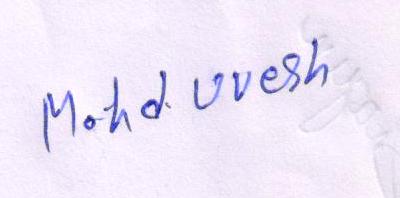 Mohd. uvesh